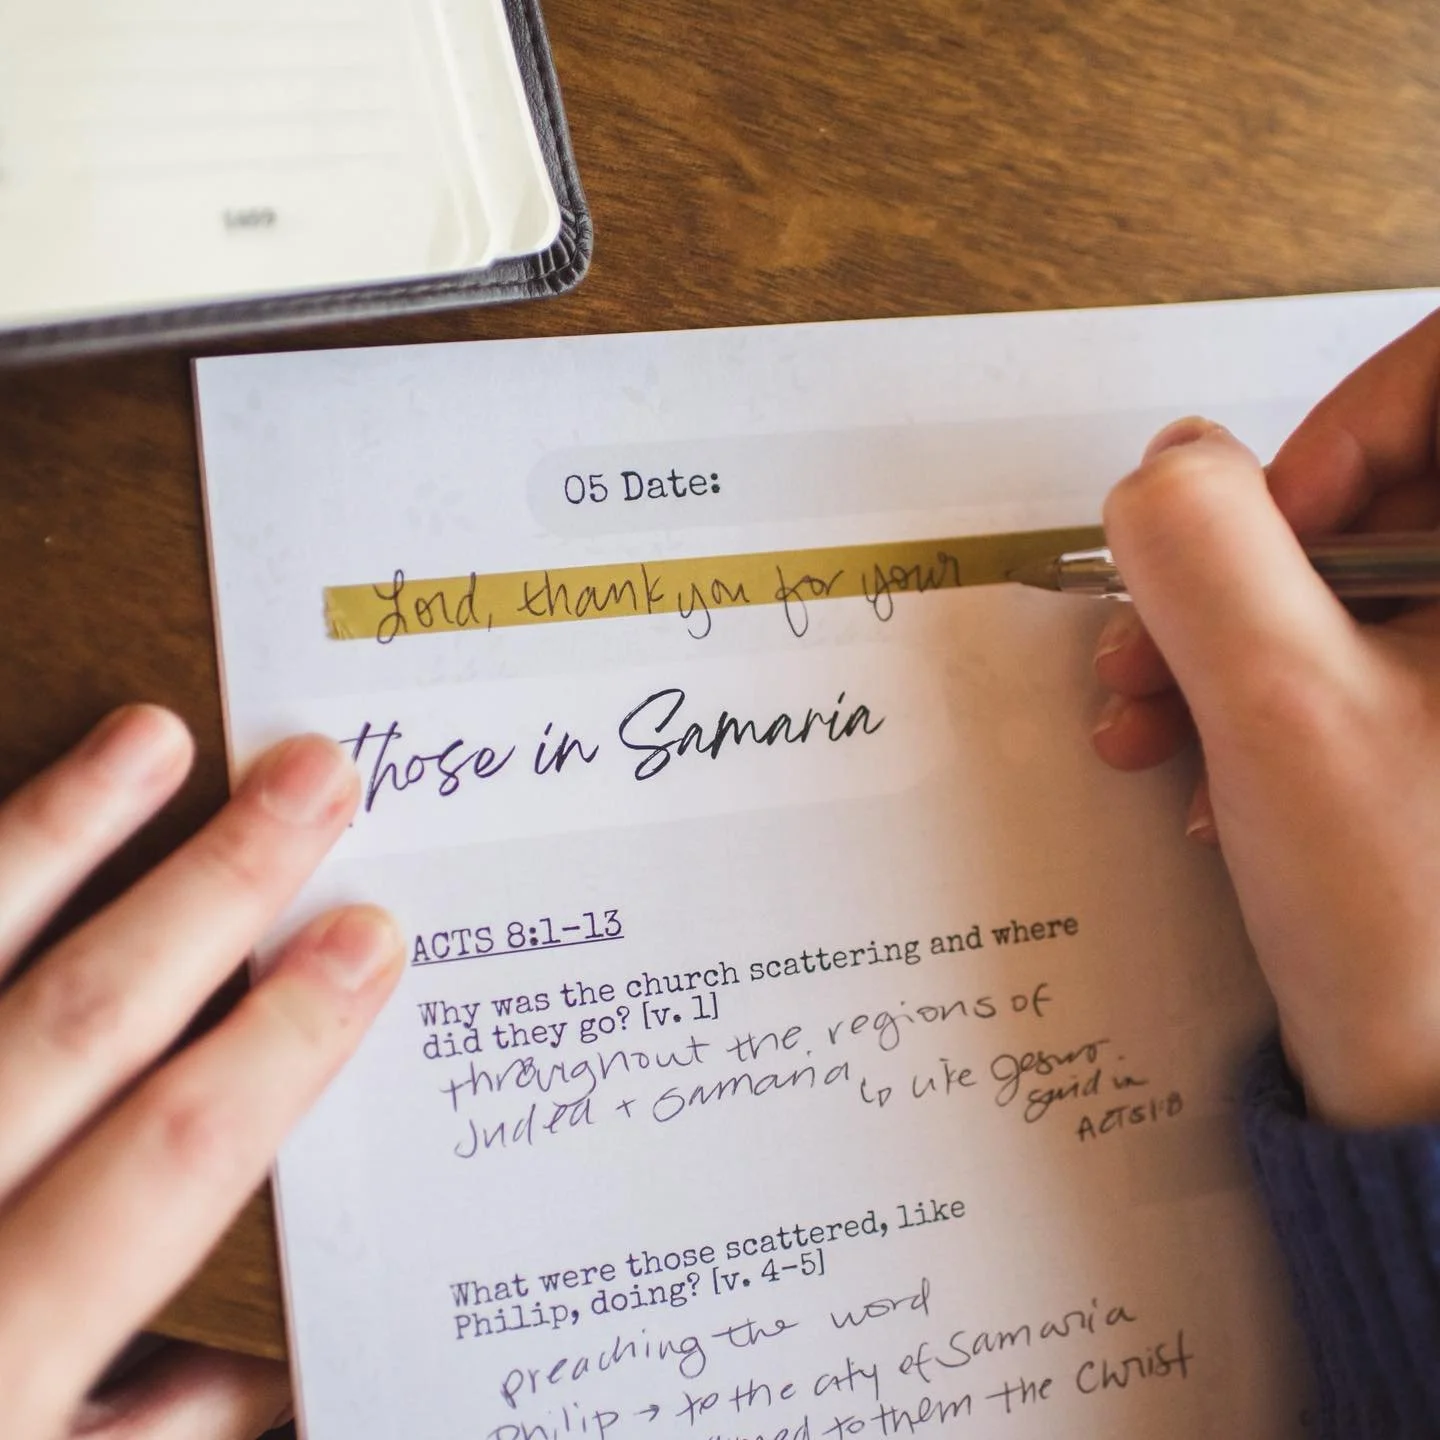 05 Date:
Lord, thank you for your
Those in Samaria
ACTS 8:1-13
Why was the church scattering and where
did they go? [v. 1]
throughout the regions of
Judea + Samaria ↳ like Jesus
said in
ACTS 1:8
What were those scattered, like
Philip, doing? [v. 4-5]
preaching the word
Philip → to the city of Samaria
to them the Christ